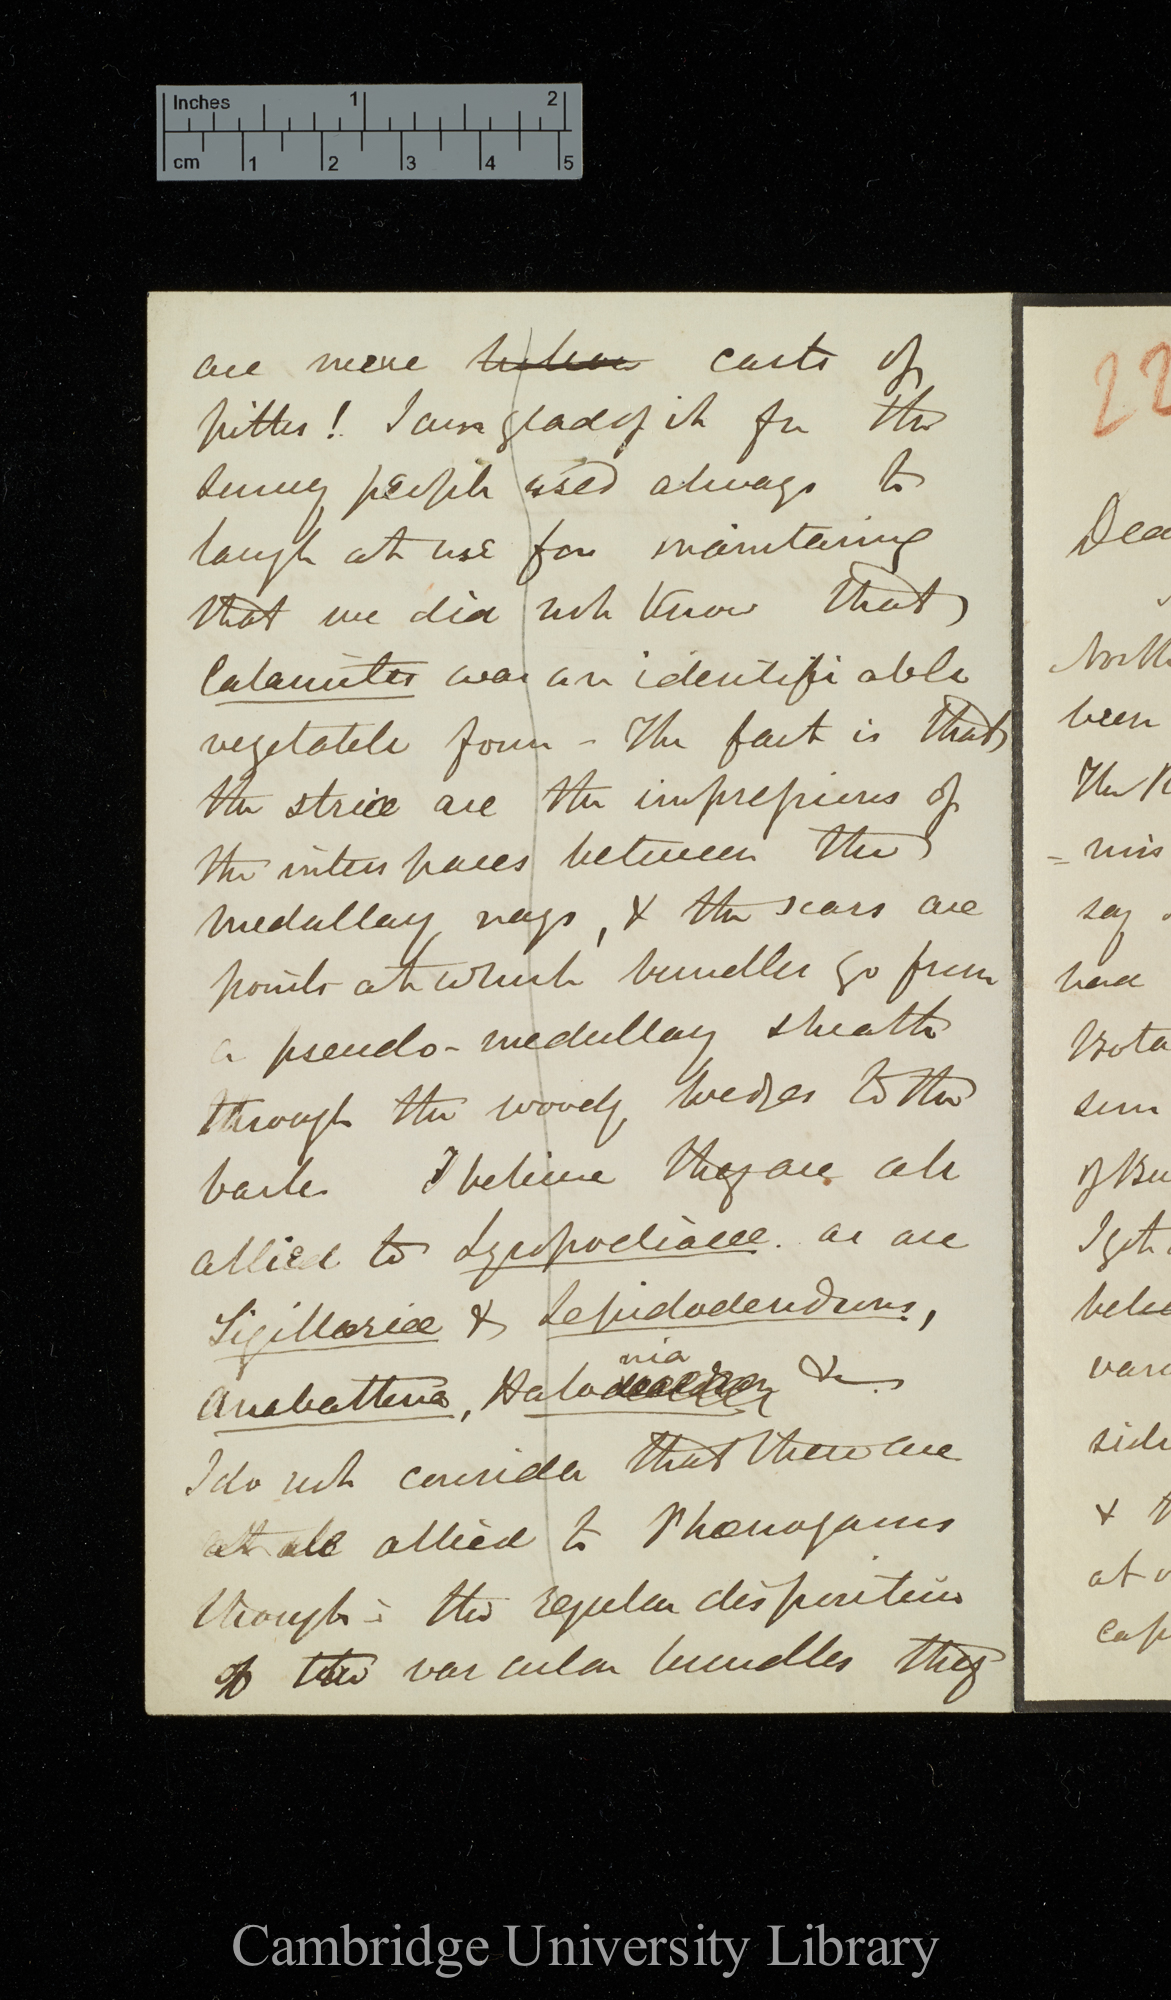 Inches 1 2
cm 1 2 3 4 5
are mere casts of
piths! I am glad of it for the
sunny people used always to
laugh at me for maintaining
that we did not know that
Calamites was an identifiable
vegetable form – The fact is that
the striæ are the impressions of
the interspaces between the
medullary rays, & the scars are
points at which bundles go from
a pseudo-medullary sheath
through the woody wedges to the
bark. I believe they are all
allied to Lycopodiaceæ. as are
Sigillariæ & Lepidodendrons,
Anabathra, Halonia &c.
I do not consider that these are
at all allied to Phænogams
though in the regular disposition
of the vascular bundles they
22
Dea
North
been
The R
= mis
say
had
Bota
sem
of Bu
I get
belie
vard
side
& t
at
cap
Cambridge University Library